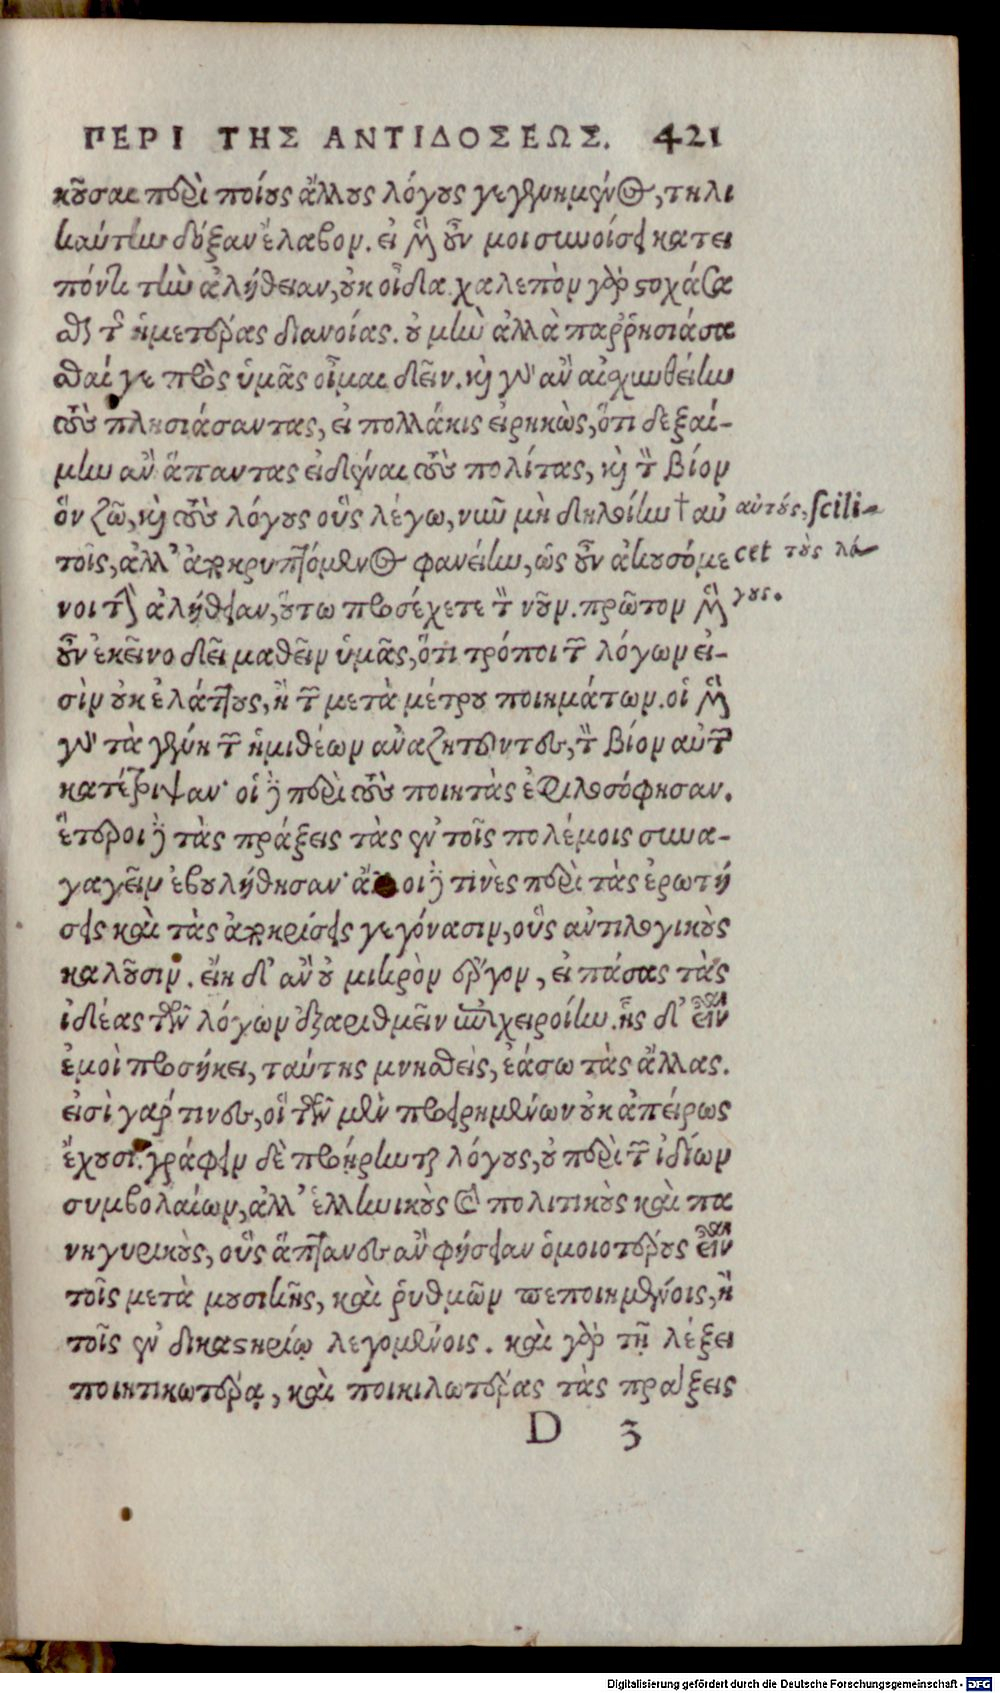 ΠΕΡΙ ΤΗΣ ΑΝΤΙΔΟΣΕΩΣ. 421
κοῦσαι περὶ ποίους ἄλλους λόγους γεγενημένος, τηλι
καύτην δόξαν ἔλαβον. εἰ μὲν οὖν μοι συνοίσει κατει
πόντι τὴν ἀλήθειαν, οὐκ οἶδα. χαλεπὸν γὰρ στοχάζε
σθαι τῆς ἡμετέρας διανοίας. οὐ μὴν ἀλλὰ παῤῥησιάσα
σθαί γε πρὸς ὑμᾶς οἶμαι δεῖν. καὶ γὰρ ἂν αἰσχυνθείην
τοὺς πλησιάσαντας, εἰ πολλάκις εἰρηκὼς, ὅτι δεξαί-
μην ἂν ἅπαντας εἰδέναι τοὺς πολίτας, καὶ τὸν βίον
ὃν ζῶ, καὶ τοὺς λόγους οὓς λέγω, νῦν μὴ δηλοίην † αὐ
τοῖς, ἀλλ' ἀποκρυπτόμενος φανείην, ὡς οὖν ἀκουσόμε
νοι τὴν ἀλήθειαν, οὕτω προσέχετε τὸν νοῦν. πρῶτον μὲν
οὖν ἐκεῖνο δεῖ μαθεῖν ὑμᾶς, ὅτι τρόποι τῶν λόγων εἰ-
σὶν οὐκ ἐλάττους, ἢ τῶν μετὰ μέτρου ποιημάτων. οἱ μὲν
γὰρ τὰ γένη τῶν ἡμιθέων ἀναζητοῦντες, τὸν βίον αὐτῶν
κατέτριψαν· οἱ δὲ περὶ τοὺς ποιητὰς ἐφιλοσόφησαν.
ἕτεροι δὲ τὰς πράξεις τὰς ἐν τοῖς πολέμοις συνα-
γαγεῖν ἐβουλήθησαν· ἄλλοι δὲ τινὲς περὶ τὰς ἐρωτή
σεις καὶ τὰς ἀποκρίσεις γεγόνασιν, οὓς ἀντιλογικοὺς
καλοῦσιν. εἴη δ' ἂν οὐ μικρὸν ἔργον, εἰ πάσας τὰς
ἰδέας τῶν λόγων ἐξαριθμεῖν ἐπιχειροίην. ἧς δ' οὖν
ἐμοὶ προσήκει, ταύτης μνησθεὶς, ἐάσω τὰς ἄλλας.
εἰσὶ γάρ τινες, οἳ τῶν μὲν προειρημένων οὐκ ἀπείρως
ἔχουσι. γράφειν δὲ προῄρηνται λόγους, οὐ περὶ τῶν ἰδίων
συμβολαίων, ἀλλ' ἑλληνικοὺς καὶ πολιτικοὺς καὶ πα
νηγυρικοὺς, οὓς ἅπαντες ἂν φήσειαν ὁμοιοτέρους εἶναι
τοῖς μετὰ μουσικῆς, καὶ ῥυθμῶν πεποιημένοις, ἢ
τοῖς ἐν δικαστηρίῳ λεγομένοις. καὶ γὰρ τῇ λέξει
ποιητικωτέρᾳ, καὶ ποικιλωτέρας τὰς πράξεις
D 3
αὐτούς, scili-
cet τοὺς λό-
γους.
Digitalisierung gefördert durch die Deutsche Forschungsgemeinschaft - DFG